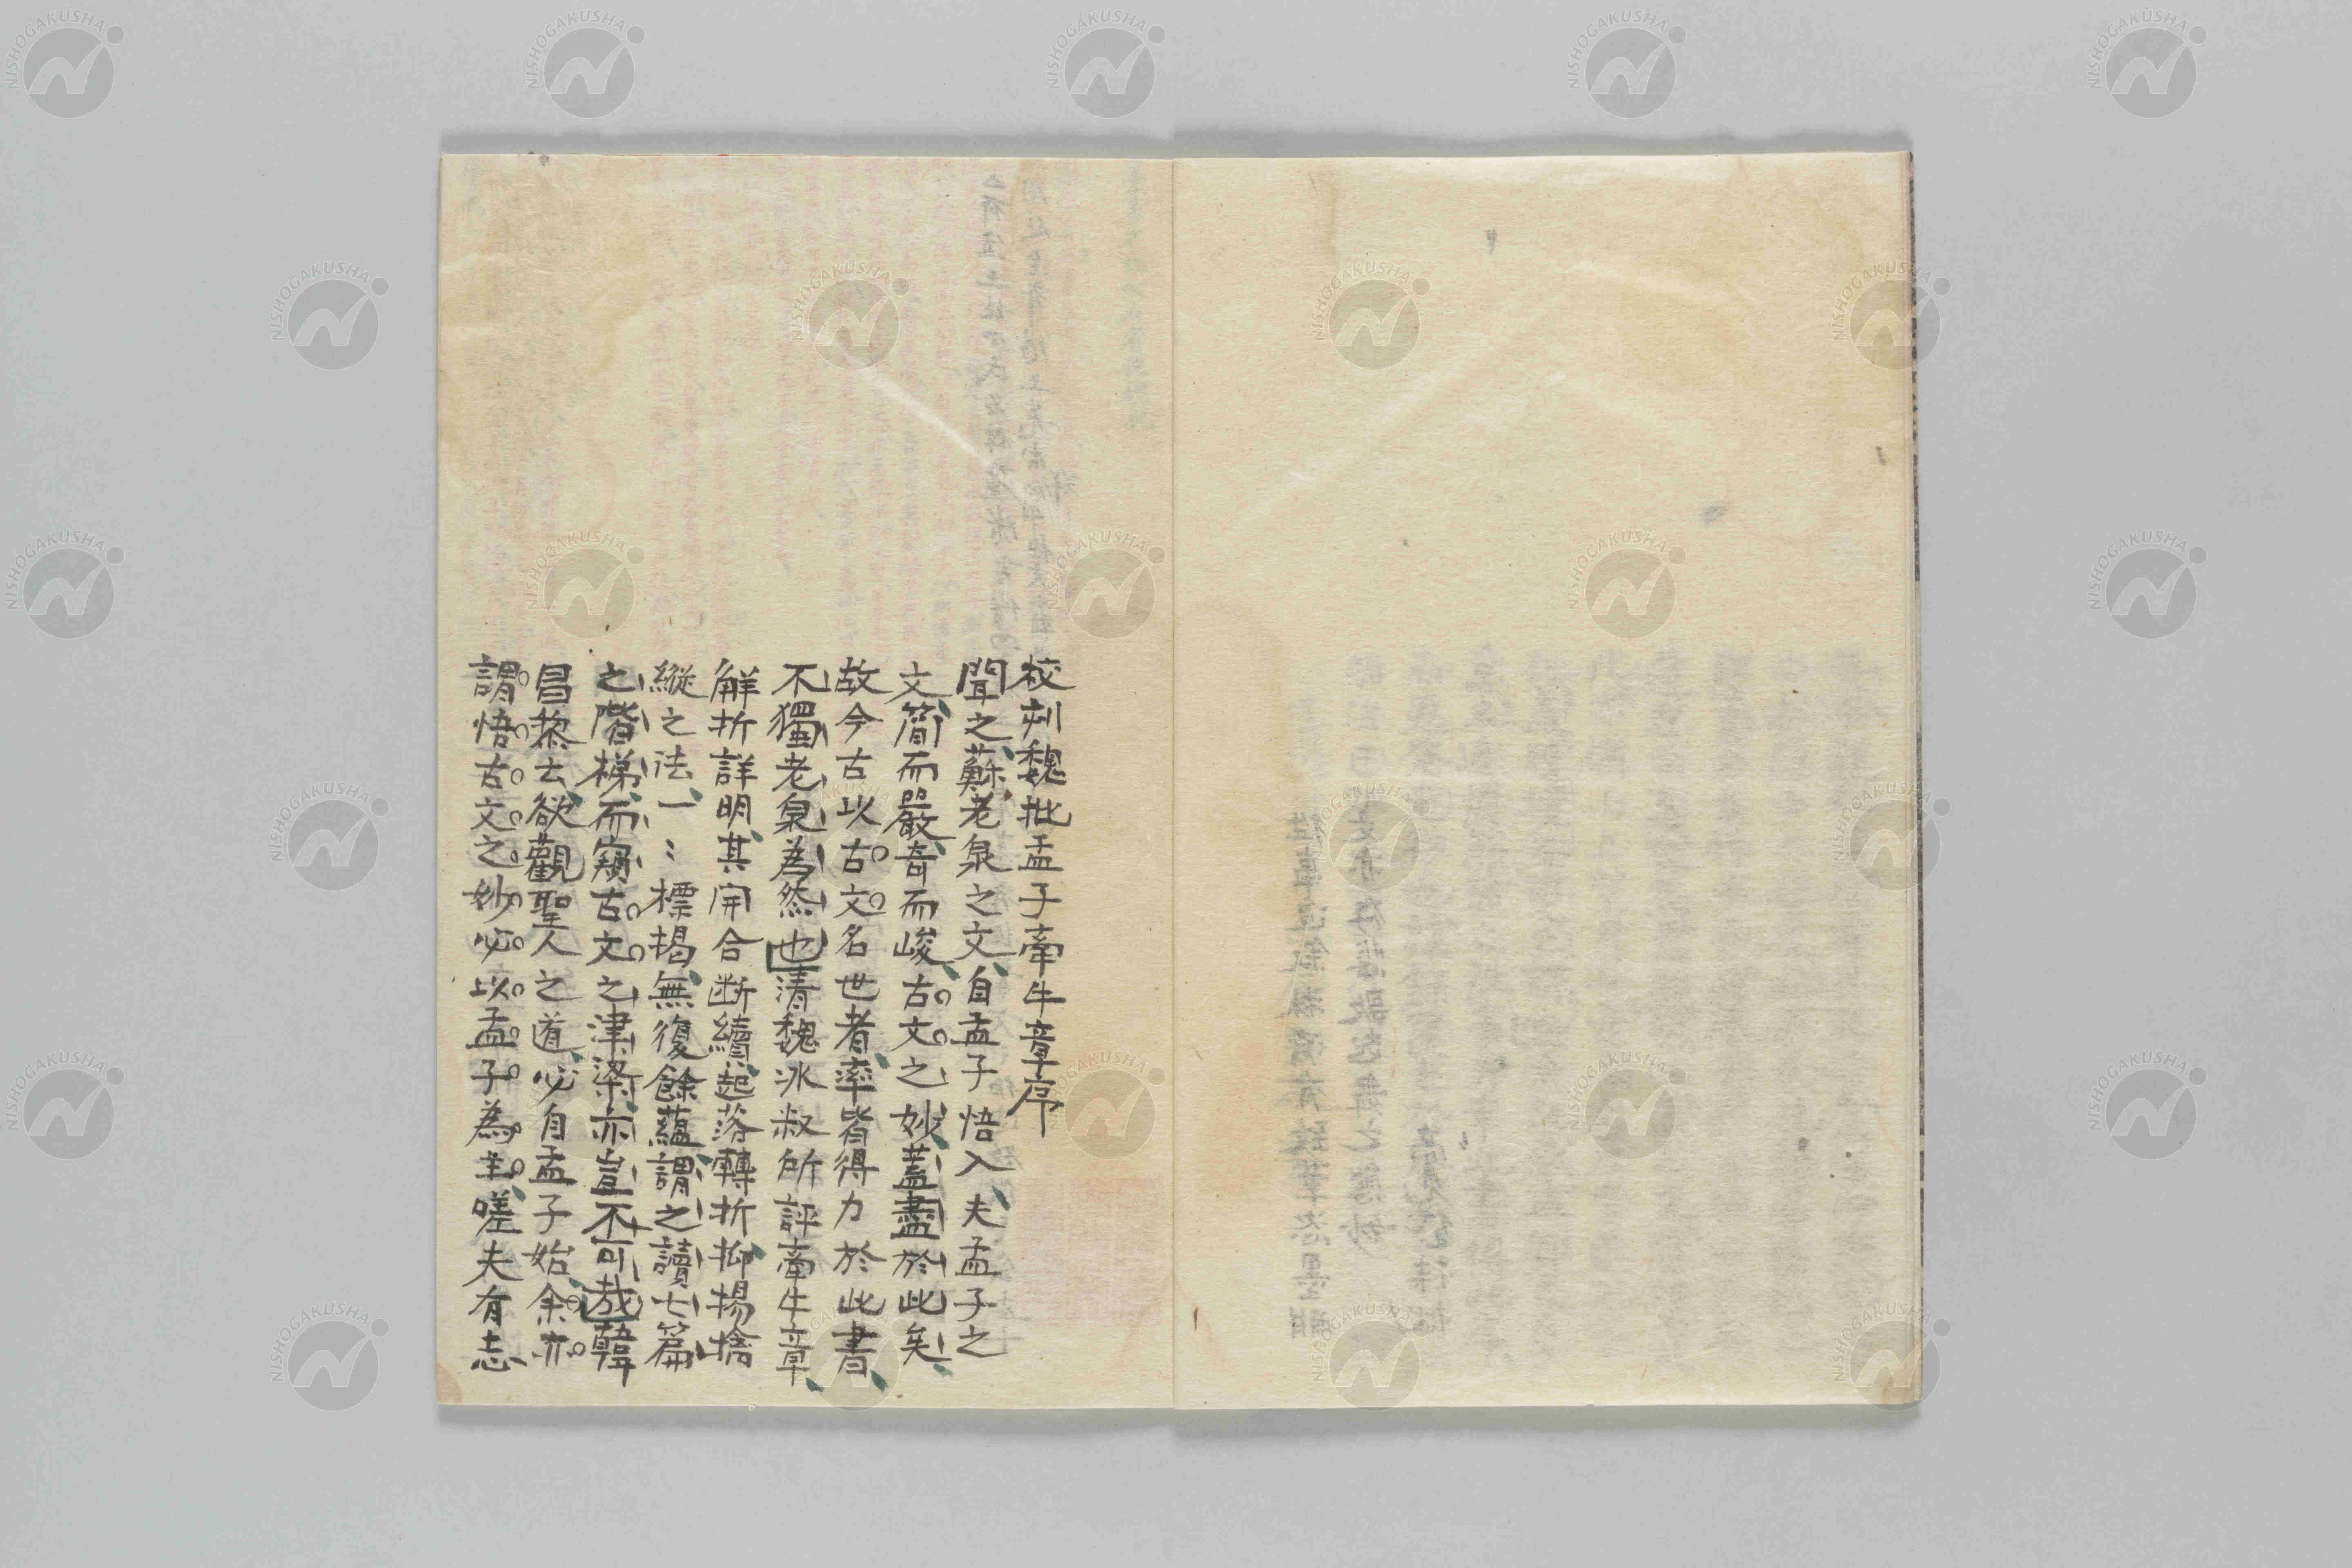 校刻魏批孟子牽牛章序
聞之蘇老泉之文自孟子悟入夫孟子之
文簡而嚴奇而峻古文之妙蓋盡於此矣
故今古以古文名世者率皆得力於此書
不獨老泉為然也清魏冰叔所評牽牛章
解折詳明其開合断續起落轉折抑揚擒
縱之法一〻標揭無復餘蘊謂之讀七篇
之階梯而窺古文之津梁亦豈不可哉韓
昌黎云欲觀聖人之道必自孟子始余亦
謂悟古文之妙必以孟子為主嗟夫有志
NISHOGAKUSHA